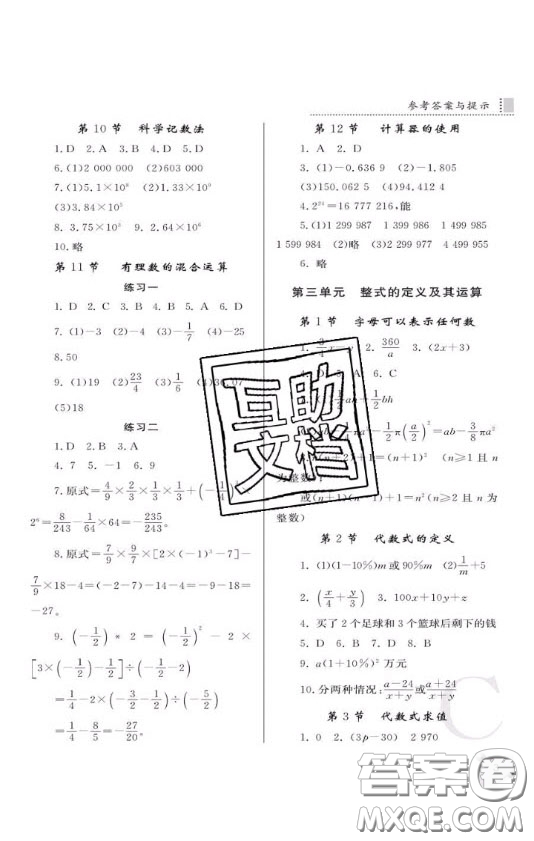 参考答案与提示
第10节 科学记数法
1. D 2. A 3. B 4. D 5. D
6.(1)2 000 000 (2)603 000
7.(1)5.1×10⁸ (2)1.33×10⁹
(3)3.84×10⁵
8. 3.75×10⁸ 9. 2.64×10⁶
10.略
第11节 有理数的混合运算
练习一
1. D 2. C 3. A 4. B 5. B 6. C
7.(1)-3 (2)-4 (3)-1/7 (4)-25
8.50
9.(1)19 (2)23/4 (3)1/6 (4)36.07
(5)18
练习二
1. D 2. B 3. A
4. 7 5. -1 6. 9
7.原式=4/9×2/3×1/3×1/3+(-1/4)
2⁶=8/243-1/64×64=-235/243.
8.原式=7/9×9/7×[2×(-1)³-7]-
7/9×18-4=(-2-7)-14-4=-9-18=
-27。
9.(-1/2)*2=(-1/2)²-2×
[3×(-1/2)-1/2]÷(-1/2-2)
=1/4-2×(-3/2-1/2)÷(-5/2)
=1/4-8/5=-27/20.
第12节 计算器的使用
1. A 2. D
3.(1)-0.636 9 (2)-1.805
(3)150.062 5 (4)94.412 4
4.2²⁴=16 777 216,能
5.(1)1 299 987 1 399 986 1 499 985
1 599 984 (2)略 (3)2 299 977 4 499 955
6.略
第三单元 整式的定义及其运算
第1节 字母可以表示任何数
1. 3/4x 2. 360/a 3.(2x+3)
4. D 5. A 6. C
ah+1/2bh
ab-1/2π(a/2)²=ab-3/8πa²
n(n+2)+1=(n+1)² (n≥1且n
为整数)
或(n+1)(n-1)+1=n²(n≥2且n为
整数)
第2节 代数式的定义
1.(1)(1-10%)m或90%m (2)1/m+5
2.(x/4+y/3) 3.100x+10y+z
4.买了2个足球和3个篮球后剩下的钱
5. D 6. B 7. D 8. D
9.a(1+10%)²万元
10.分两种情况:a-24/x+y或a+24/x+y
第3节 代数式求值
1. 0 2.(3p-30) 2 970
互助
文档
答案圈
MXQE.COM